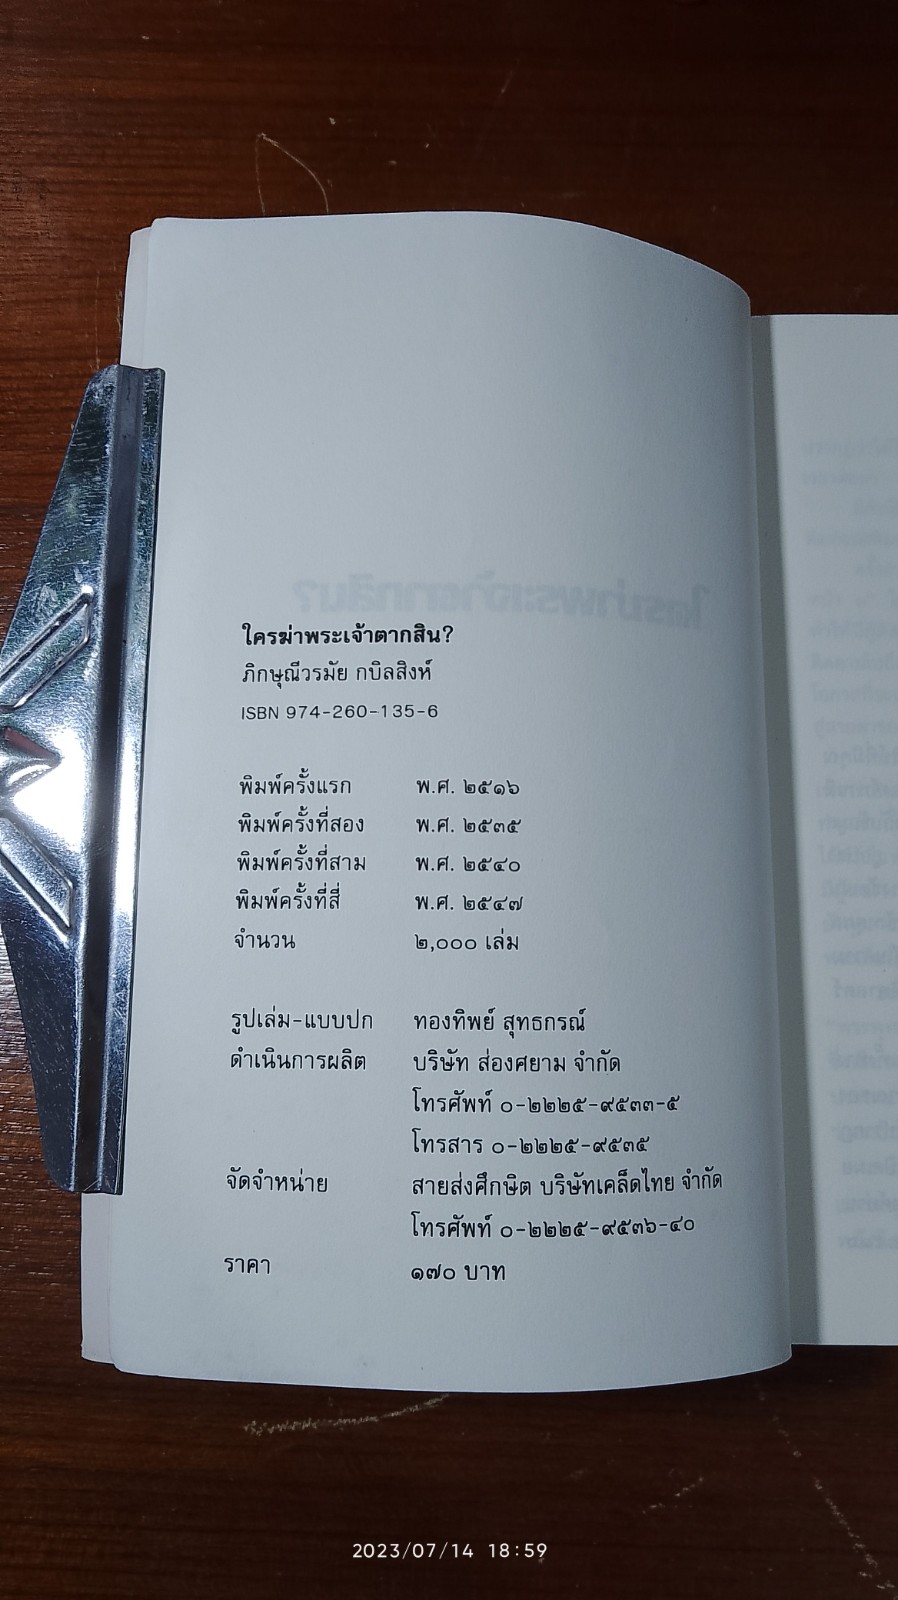 ใครฆ่าพระเจ้าตากสิน?
ภิกษุณีวรมัย กบิลสิงห์
ISBN 974-260-135-6
พิมพ์ครั้งแรก พ.ศ. ๒๕๑๖
พิมพ์ครั้งที่สอง พ.ศ. ๒๕๓๕
พิมพ์ครั้งที่สาม พ.ศ. ๒๕๔๐
พิมพ์ครั้งที่สี่ พ.ศ. ๒๕๔๗
จำนวน ๒,๐๐๐ เล่ม
รูปเล่ม-แบบปก ทองทิพย์ สุทธกรณ์
ดำเนินการผลิต บริษัท ส่องศยาม จำกัด
โทรศัพท์ ๐-๒๒๒๕-๙๕๓๓-๕
โทรสาร ๐-๒๒๒๕-๙๕๓๕
จัดจำหน่าย สายส่งศึกษิต บริษัทเคล็ดไทย จำกัด
โทรศัพท์ ๐-๒๒๒๕-๙๕๓๖-๔๐
ราคา ๑๗๐ บาท
2023/07/14 18:59